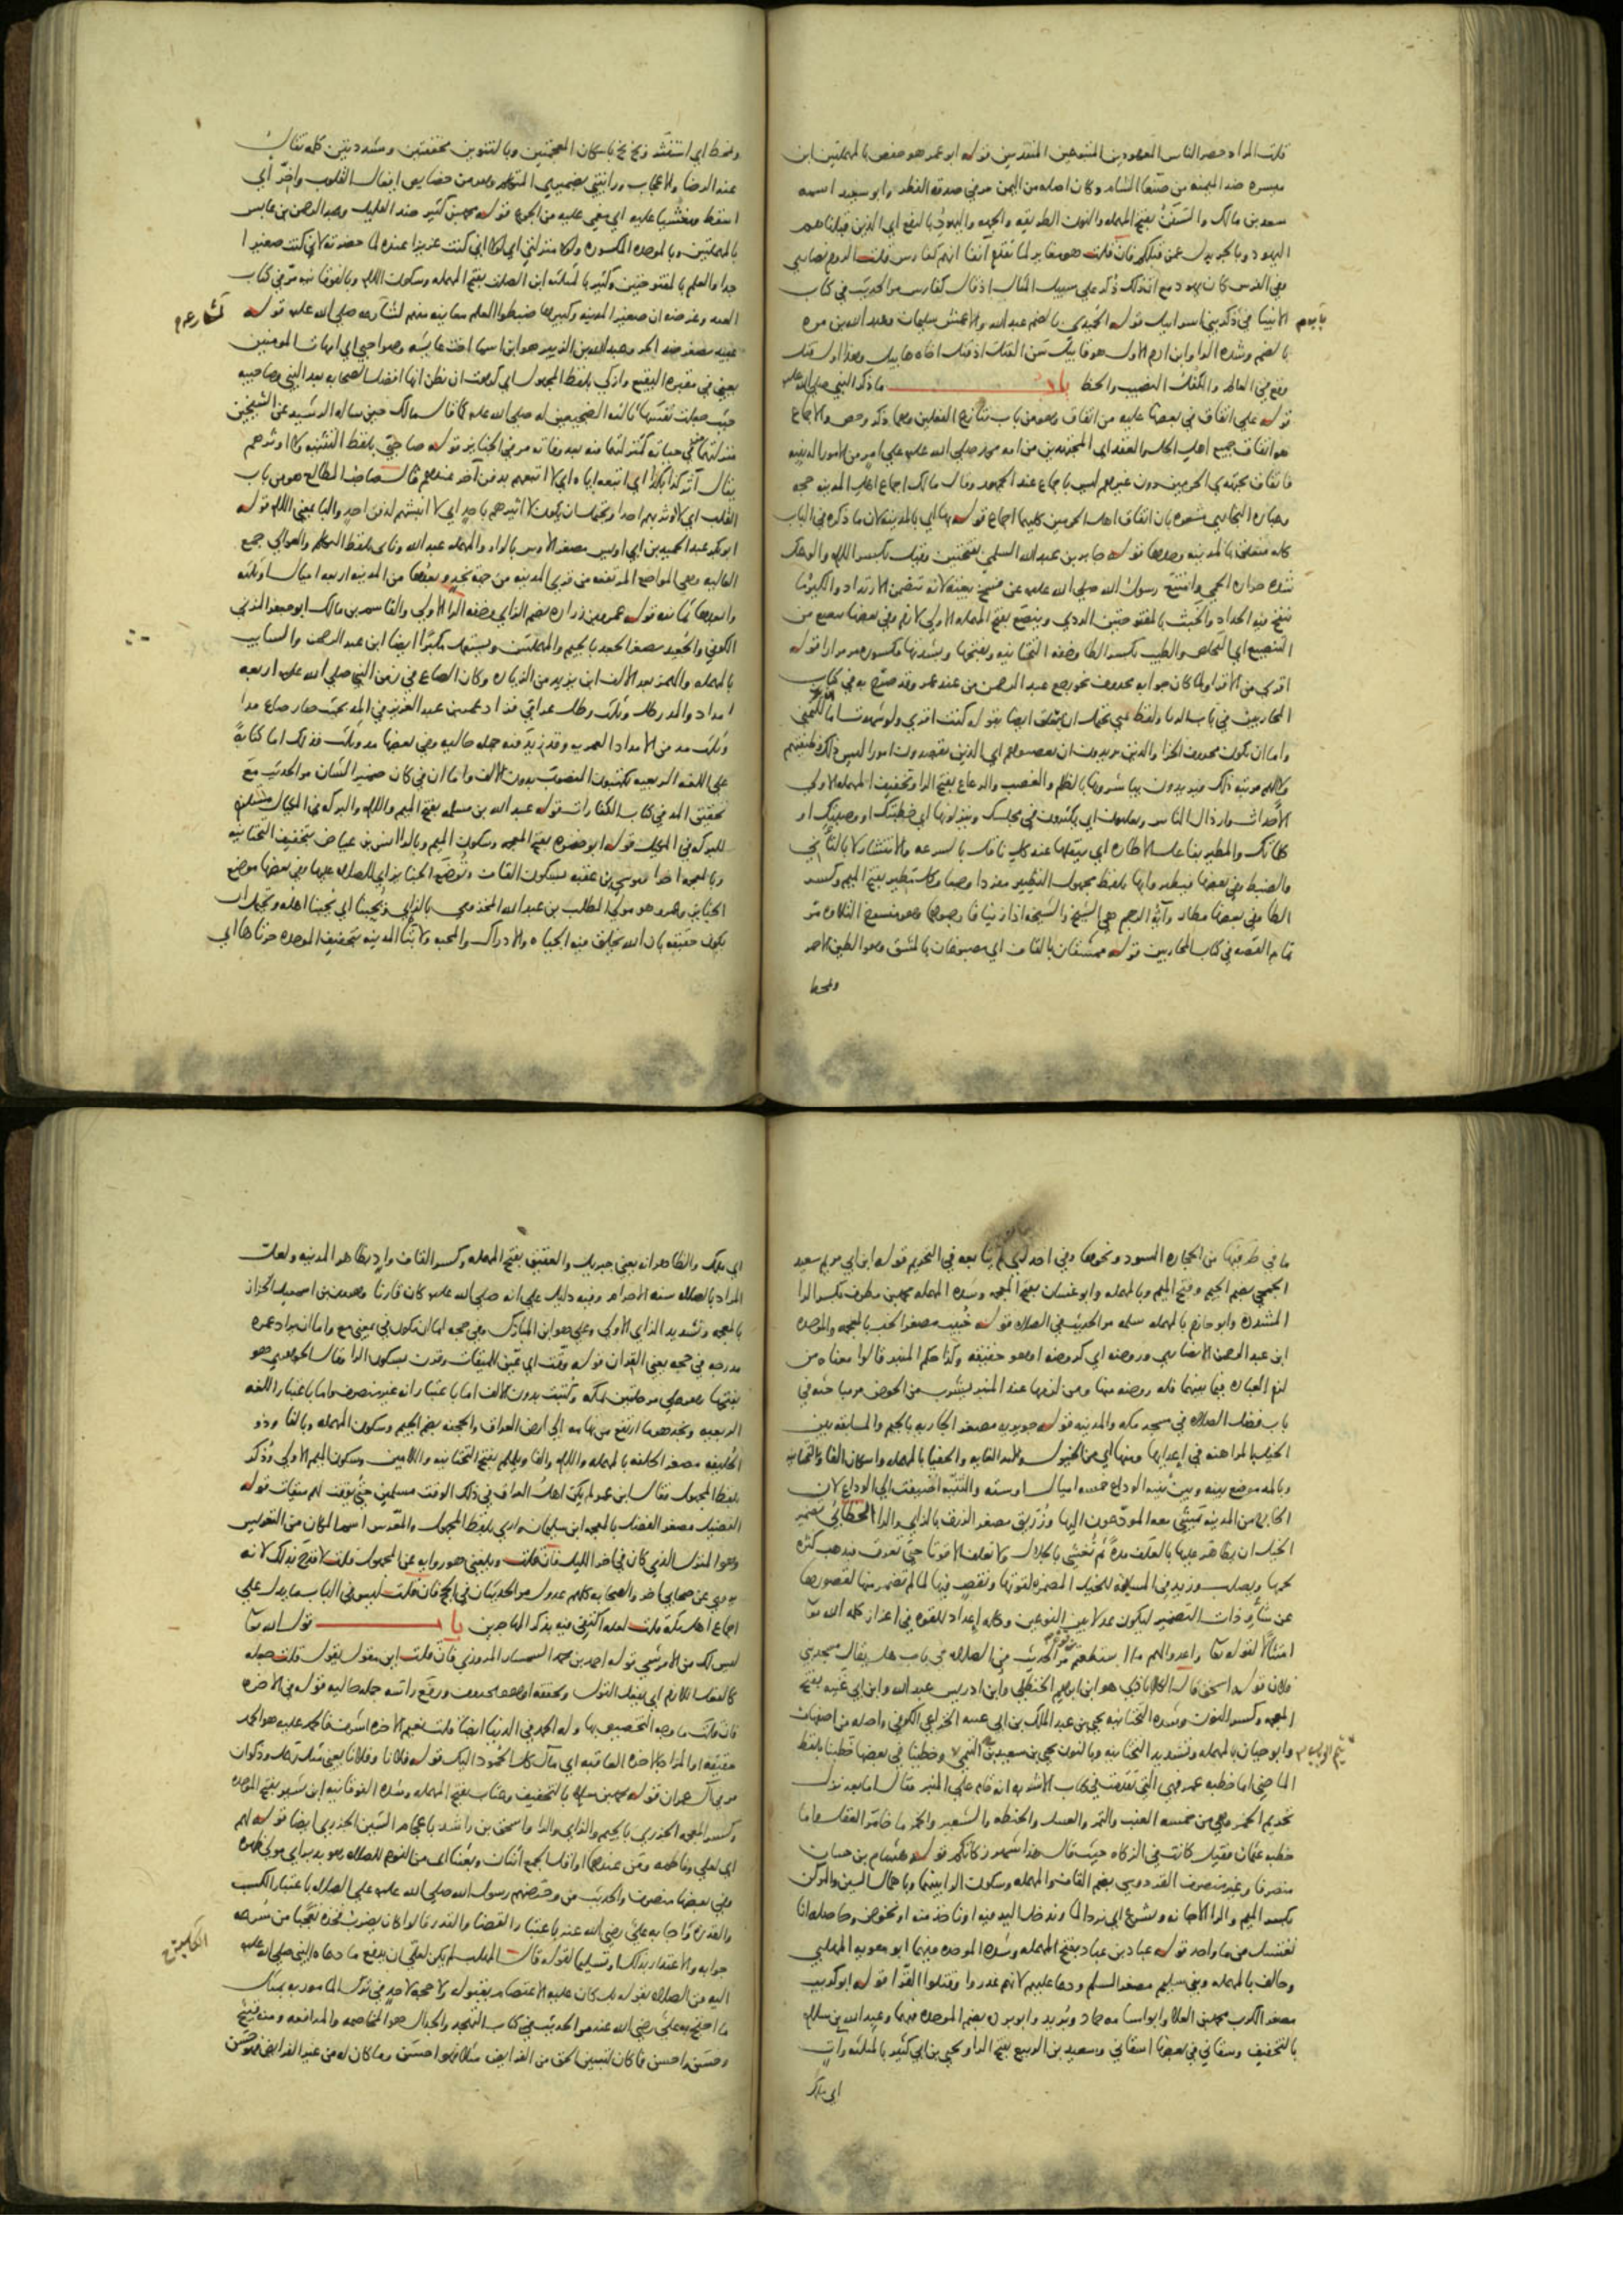 قلت المراد حصر الناس المعهودين المتبوعين المتقدمين قوله ابو عمر هو حفص بالمهملتين ابن
ميسره ضد الميمنه من صنعا الشام وكان اصله من اليمن مر في صدقه الفطر وابو سعيد اسمه
سعد بن مالك والسنن بفتح المهمله والنون الطريقه والجهه واليهود بالرفع اي الذين قبلنا هم
اليهود وبالجر بدل عمن قبلكم فان قلت هو مغاير لما تقدم آنفا انهم كفارس قلت الروم نصاري
وفي الفرس كان يهود مع ان ذلك ذكر علي سبيل المثال اذ قال كفارس مر الحديث في كتاب
الانبيا في ذكر بني اسرائيل قوله الحميدي بالضم عبد الله والاعمش سليمان وعبد الله بن مره
بالضم وشده الرا وابن ادم الاول هو قابيل سن القتل اذ قتل اخاه هابيل وهذا اول قتل
وقع في العالم والكفل النصيب والحظ باب ما ذكر النبي صلي الله عليه
قوله علي اتفاق في بعضها عليه من اتفاق وهو من باب تنازع الفعلين وهما ذكر وحض والاجماع
هو اتفاق جميع اهل الحل والعقد اي المجتهدين من امه محمد صلي الله عليه علي امر من الامور الدينيه
فاتفاق مجتهدي الحرمين دون غيرهم ليس باجماع عند الجمهور وقال مالك اجماع اهل المدينه حجه
وعباره البخاري مشعره بان اتفاق اهل الحرمين كليهما اجماع قوله بها اي بالمدينه لان ما ذكره في الباب
كله متعلق بالمدينه وحدها قوله جابر بن عبد الله السلمي بفتحتين وقيل بكسر اللام والوعك
شده حراره الحمي وامتنع رسول الله صلي الله عليه عن فسخ بيعته لانه تتضمن الارتداد والكير ما
ينفخ فيه الحداد والخبث بالمفتوحتين الردي وينصع بفتح المهمله الاولي لازم وفي بعضها
التنصيع اي التخليص والطيب بكسر الطا وخفه التحتانيه وبفتحها وبشدتها مكسوره مر مرارا قوله
اقري من الاقرا ولما كان جوابه محذوف نحو رجع عبد الرحمن من عند عمر وقد صرح به في كتاب
المحاربين في باب
واما ان يكون محذوف الجزا والذين يريدون ان يغصبوهم اي الذين يقصدون امورا ليس ذلك وظيفتهم
ولا لهم مرتبه ذلك فيريدون يباشرونها بالظلم والغصب والرعاع بفتح الرا وتخفيف المهمله الاولي
الاحداث وارذال الناس ويغلبون اي يكثرون في مجلسك وينزلونها اي خطبتك او وصيتك او
كلماتك والمطير بفاعل الاطاره اي ينقلها عنك كل ناقل بالسرعه والانتشار لا بالتأني
والضبط وفي بعضها فيطير وايها بلفظ مجهول التطيير مفردا وجمعا وكل مطير بفتح الميم وكسر
الطا وفي بعضها مطار وآيه الرجم هي الشيخ والشيخه اذا زنيا فارجموهما وهو منسوخ التلاوه مر
تمام القصه في كتاب المحاربين قوله ممشقان بالقاف اي مصبوغان بالمشق وهو الطين الاحمر
ومخط
ومخط اي استنثر وبخ بخ باسكان المعجمتين وبالتنوين مخففتين ومشددتين كلمه تقال
عند الرضا والاعجاب ورايتني بضميري المتكلم وهو من خصايص افعال القلوب واخر اي
اسقط ومغشيا عليه اي مغمي عليه من الجوع قوله محمد بن كثير ضد القليل وعبد الرحمن بن عابس
بالمهملتين وبالموحده المكسوره ولولا منزلتي اي لولا اني كنت عزيزا عنده لما حضرته لاني كنت صغيرا
جدا والعلم بالمفتوحتين وكثير بالمثلثه ابن الصلت بفتح المهمله وسكون اللام وبالفوقانيه مر في كتاب
العيد وغرضه ان صغير المدينه وكبيرها ضبطوا العلم معاينه منهم لشارعه صلي الله عليه قوله
عبيد مصغر ضد الحر وعبد الله بن الزبير هو ابن اسما اخت عايشه وصواحبي اي امهات المومنين
يعني في مقبره البقيع وازكي بلفظ المجهول اي كرهت ان يظن انها افضل الصحابه بعد النبي وصاحبيه
حيث جعلت نفسها ثالثه الضجيعين له صلي الله عليه كما قال مالك حين ساله الرشيد عن الشيخين
منزلتهما في حياته كمنزلتهما منه بعد وفاته مر في الجنايز قوله صاحبي بلفظ التثنيه ولا اوثرهم
يقال آثر كذا بكذا اي اتبعه اياه اي لا اتبعهم بدفن آخر عندهم قال صاحب المطالع هو من باب
القلب اي لا اوثر بهم احدا ويحتمل ان يكون لا اثيرهم باحد اي لا انبشهم لدفن احد والبا بمعني اللام قوله
ابو بكر عبد الحميد بن ابي اويس مصغر الاوس بالواو والمهمله عبد الله والعوالي جمع
العاليه وهي المواضع المرتفعه من قري المدينه من جهه نجد وبعدها من المدينه اربعه اميال او ثلثه
وابعدها ثمانيه قوله عمرو بن زراره بضم الزاي وخفه الرا الاولي والقاسم بن مالك ابو جعفر المزني
الكوفي والجعيد مصغر الجعد بالجيم والمهملتين ويستعمل مكبرا ايضا ابن عبد الرحمن والسايب
بالمهمله والهمز بعد الالف ابن يزيد من الزياده وكان الصاع في زمن النبي صلي الله عليه اربعه
امداد والمد رطل وثلث رطل عراقي فزاد عمر بن عبد العزيز في المد بحيث صار صاع مدا
وثلث مد من الامداد العمريه وقد زيد فيه جمله حاليه وفي بعضها مد وثلث فذلك اما كتابة
علي اللغه الربيعيه يكتبون المنصوب بدون الالف واما ان في كان ضمير الشان مر الحديث مع
تحقيق المد في كتاب الكفارات قوله عبد الله بن مسلمه بفتح الميم واللام والبركه في المكيال مستلزم
للبركه في المكيل قوله ابو ضمره بفتح المعجمه وسكون الميم وبالرا انس بن عياض بتخفيف التحتانيه
وبالمعجمه اخرا وموسي بن عقبه بسكون القاف وتوضع الجنايز اي للصلاه عليها وفي بعضها موضع
الجنايز وعمرو هو مولي المطلب بن عبد الله المخزومي ويحبنا اي يحبنا اهله ويحتمل ان
يكون حقيقه بان الله يخلق فيه الحياه والادراك والمحبه ولابتا المدينه بتخفيف الموحده حرتاها اي
ما في طرفيها من الحجاره السود ونحوها وفي احد اي تابعه في التحريم قوله ابن ابي مريم سعيد
الجمحي بضم الجيم وفتح الميم وبالمهمله وابو غسان بفتح المعجمه وشده المهمله محمد بن مطرف بكسر الرا
المشدده وابو حازم بالمهمله سلمه مر الحديث في الصلاه قوله خبيب مصغر الخب بالمعجمه والموحده
ابن عبد الرحمن الانصاري وروضه اي كروضه او هو حقيقه وكذا حكم المنبر قالوا معناه من
لزم العباده فيما بينهما فله روضه منها ومن لزمها عند المنبر يشرب من الحوض مر مباحثه في
باب فضل الصلاه في مسجد مكه والمدينه قوله جويريه مصغر الجاريه بالجيم والمسابقه بين
الخيل المراهنه في اعدايها ومنها اي من الخيول والحفيا بالمهمله واسكان الفا والتحتانيه
وبالمد موضع بينه وبين ثنيه الوداع خمسه اميال او سته والثنيه اضيفت الي الوداع لان
الخارج من المدينه يمشي معه المودعون اليها وزريق مصغر الزرق بالزاي والرا الخطابي تضمير
الخيل ان يظاهر عليها بالعلف مده ثم تغشي بالجلال ولا تعلف الا قوتا حتي تعرق فيذهب كثره
لحمها ويصلب وزيد في المسافه للخيل المضمره لقوتها ونقص فيها لما لم تضمر منها لقصورها
عن شأو ذات التضمير ليكون عدلا بين النوعين وكله اعداد للقوه في اعزاز كلمه الله تعا
امتثالا لقوله تعا واعدوا لهم ما استطعتم مر الحديث في الصلاه في باب هل يقال مسجد بني
فلان قوله اسحق قال الكلاباذي هو ابن ابرهيم الحنظلي وابن ادريس عبد الله وابن ابي غنيه بفتح
المعجمه وكسر النون وشده التحتانيه يحيي بن عبد الملك بن ابي غنيه الخزاعي الكوفي واصله من اصفهان
وابو حيان بالمهمله وتشديد التحتانيه وبالنون يحيي بن سعيد التيمي وخطبنا في بعضها خطيبا بلفظ
الماضي اما خطبه عمر فهي التي تقدمت في كتاب الاشربه انه قام علي المنبر فقال اما بعد نزل
تحريم الخمر وهي من خمسه العنب والتمر والعسل والحنطه والشعير والخمر ما خامر العقل واما
خطبه عثمان فقيل كانت في الزكاه حيث قال هذا شهر زكاتكم قوله هشام بن حسان
منصرفا وغير منصرف القردوسي بضم القاف والمهمله وسكون الرا بينهما وباهمال السين والمركن
بكسر الميم والرا الاجانه ونشرع اي نرد الما وندخل اليد فيه او ناخذ منه او نخوض وحاصله انا
نغتسل من ما واحد قوله عباد بن عباد بفتح المهمله وشده الموحده فيهما ابو معويه المهلبي
وحالف بالمهمله وبني سليم مصغر السلم ودعا عليهم لانهم غدروا وقتلوا القرا قوله ابو كريب
مصغر الكرب محمد بن العلا وابو اسامه حماد وبريد وابو برده بضم الموحده فيهما وعبد الله بن سلام
بالتخفيف وسقاني في بعضها اسقاني وسعيد بن الربيع بفتح الرا ويحيي بن ابي كثير بالمثلثه وآت
اي ملك
اي ملك والظاهر انه يعني جبريل والعقيق بفتح المهمله وكسر القاف واد بظاهر المدينه ولعل
المراد بالصلاه سنه الاحرام وفيه دليل علي انه صلي الله عليه كان قارنا وهرون بن اسمعيل الخزاز
بالمعجمه وتشديد الزاي الاولي وعلي هو ابن المبارك وفي حجه اما ان يكون في بمعني مع واما ان يراد عمره
مدرجه في حجه يعني القران قوله وقت اي عين الميقات وقرن بسكون الرا وقال الجوهري هو
بفتحها وهو علي مرحلتين من مكه وكتبت بدون الالف اما باعتبار انه غير منصرف واما باعتبار اللغه
الربعيه ونجد هو ما ارتفع من تهامه الي ارض العراق والجحفه بضم الجيم وسكون المهمله وبالفا وذو
الحليفه مصغر الحلفه بالمهمله واللام والفا ويلملم بفتح التحتانيه واللامين وسكون الميم الاولي وذكر
بلفظ المجهول فقال ابن عمر لم يكن اهل العراق في ذلك الوقت مسلمين حتي يوقت لهم ميقات قوله
الفضيل مصغر الفضل بالمعجمه ابن سليمان واري بلفظ المجهول والمعرس اسم المكان من التعريس
وهو المنزل الذي كان في اخر الليل فان قلت وبلغني هو روايه عن المجهول قلت لا قدح بذلك لانه
يروي عن صحابي اخر والصحابه كلهم عدول مر الحديثان في الحج فان قلت ليس في الباب ما يدل علي
اجماع اهل مكه قلت لعله اكتفي فيه بذكر المهاجرين باب قول الله تعا
ليس لك من الامر شي قوله احمد بن محمد السمسار المروزي فان قلت اين مقول يقول قلت جعله
كالفعل اللازم اي يفعل القول ويحققه او هو محذوف ورفع راسه جمله حاليه قوله في الاخره
فان قلت ما وجه التخصيص بها وله الحمد في الدنيا ايضا قلت نعيم الاخره اشرف فالحمد عليه هو الحمد
حقيقه او المراد بالاخره العاقبه اي مآل كل الحمود اليك قوله فلانا وفلانا يعني مثل رعل وذكوان
مر في آل عمران قوله محمد بن سلام بالتخفيف وعتاب بفتح المهمله وشده الفوقانيه ابن بشير بفتح الموحده
وكسر المعجمه الجزري بالجيم والزاي والرا واسحق بن راشد باعجام الشين الجزري ايضا قوله لهم
اي لعلي وفاطمه ومن عندهما او اقل الجمع اثنان وبعثنا اي من النوم للصلاه وهو مدبر اي مولي ظهره
وفي بعضها منصرف والحديث من وحرضهم رسول الله صلي الله عليه علي الصلاه باعتبار الكسب
والقدره واجابه علي رضي الله عنه باعتبار القضا والقدر قالوا كان يضرب فخذه تعجبا من سرعه
جوابه والاعتذار بذلك او تسليما لقوله قال المهلب لم يكن لعلي ان يدفع ما دعاه النبي صلي الله عليه
اليه من الصلاه بقوله بل كان عليه الاعتصام بقوله ولا حجه لاحد في ترك المامور به بمثل
ما احتج به علي رضي الله عنه مر الحديث في كتاب التهجد والجدال هو المخاصمه والمدافعه ومنه قبيح
وحسن واحسن فما كان لتبيين الحق من الفرايض مثلا فهو احسن وما كان له من غير الفرايض فهو حسن